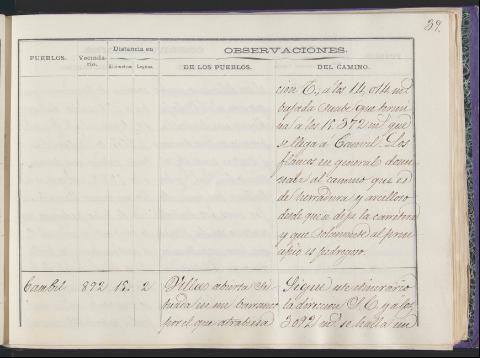 39.
PUEBLOS.
Vecinda-
rio.
Distancia en
Kilómetros
Leguas.
OBSERVACIONES.
DE LOS PUEBLOS.
DEL CAMINO.
cion E, a los 14,014 ms
bajada suave que termi
na a los 15.372 ms que
se llega a Cambil. Los
flancos en general domi
nan al camino que es
de herradura y arcilloso
desde que se deja la carretera
y que solamente al prin
cipio es pedregoso.
Cambil
892
15.
2
Villa abierta si
tuada en un barranco
por el que atraviesa
Sigue este itinerario
la direccion S.E. y a los
3092 ms se halla un